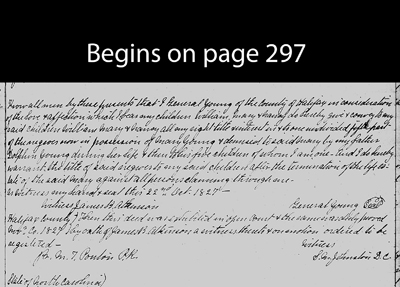 Begins on page 297
Know all men by these presents that I General Young of the County of Halifax in consideration
of the love & affection which I bear my children William, Mary & Nancy do hereby give & convey to my
said children William Mary & Nancy all my right title & interest in & to one undivided fifth part
of the negroes now in possession of Mary Young & demised to said Mary by my father
Young during her life & then to his five children of whom I am one. And I do hereby
warrant the title of said negroes to my said children after the termination of the life es-
tate of the said Mary against all persons claiming through me
Witness my hand & seal this 22nd Oct. 1824 —
Witness James B. Atkinson General Young (Seal)
Halifax County } Then this deed was exhibited in open Court & the same was duly proved
Novr. Co. 1824 by oath of James B. Atkinson a witness thereto & on motion ordered to be
registered — Witness
Pr. M. T. Ponton P.R. Johnston D.C.
State of North Carolina }